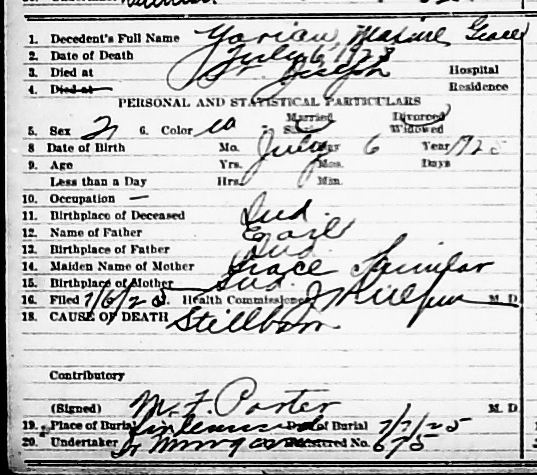 1. Decedent's Full Name Maxine Grace
2. Date of Death July 6, 1928
3. Died at St Joseph Hospital
4. Died at Residence
PERSONAL AND STATISTICAL PARTICULARS
Married Divorced
5. Sex 6. Color W 7. Single Widowed
8 Date of Birth Mo. July Day 6 Year 192
9. Age Yrs. Mos. Days
Less than a Day Hrs. Min.
10. Occupation —
11. Birthplace of Deceased Ind.
12. Name of Father Earl
13. Birthplace of Father Ind.
14. Maiden Name of Mother Grace
15. Birthplace of Mother Ind.
16. Filed 7/6/28. Health Commissioner M. D.
18. CAUSE OF DEATH Stillborn
Contributory
(Signed) M. F. Porter M. D.
19. Place of Burial Date of Burial 7/7/28
20. Undertaker Registered No. 675